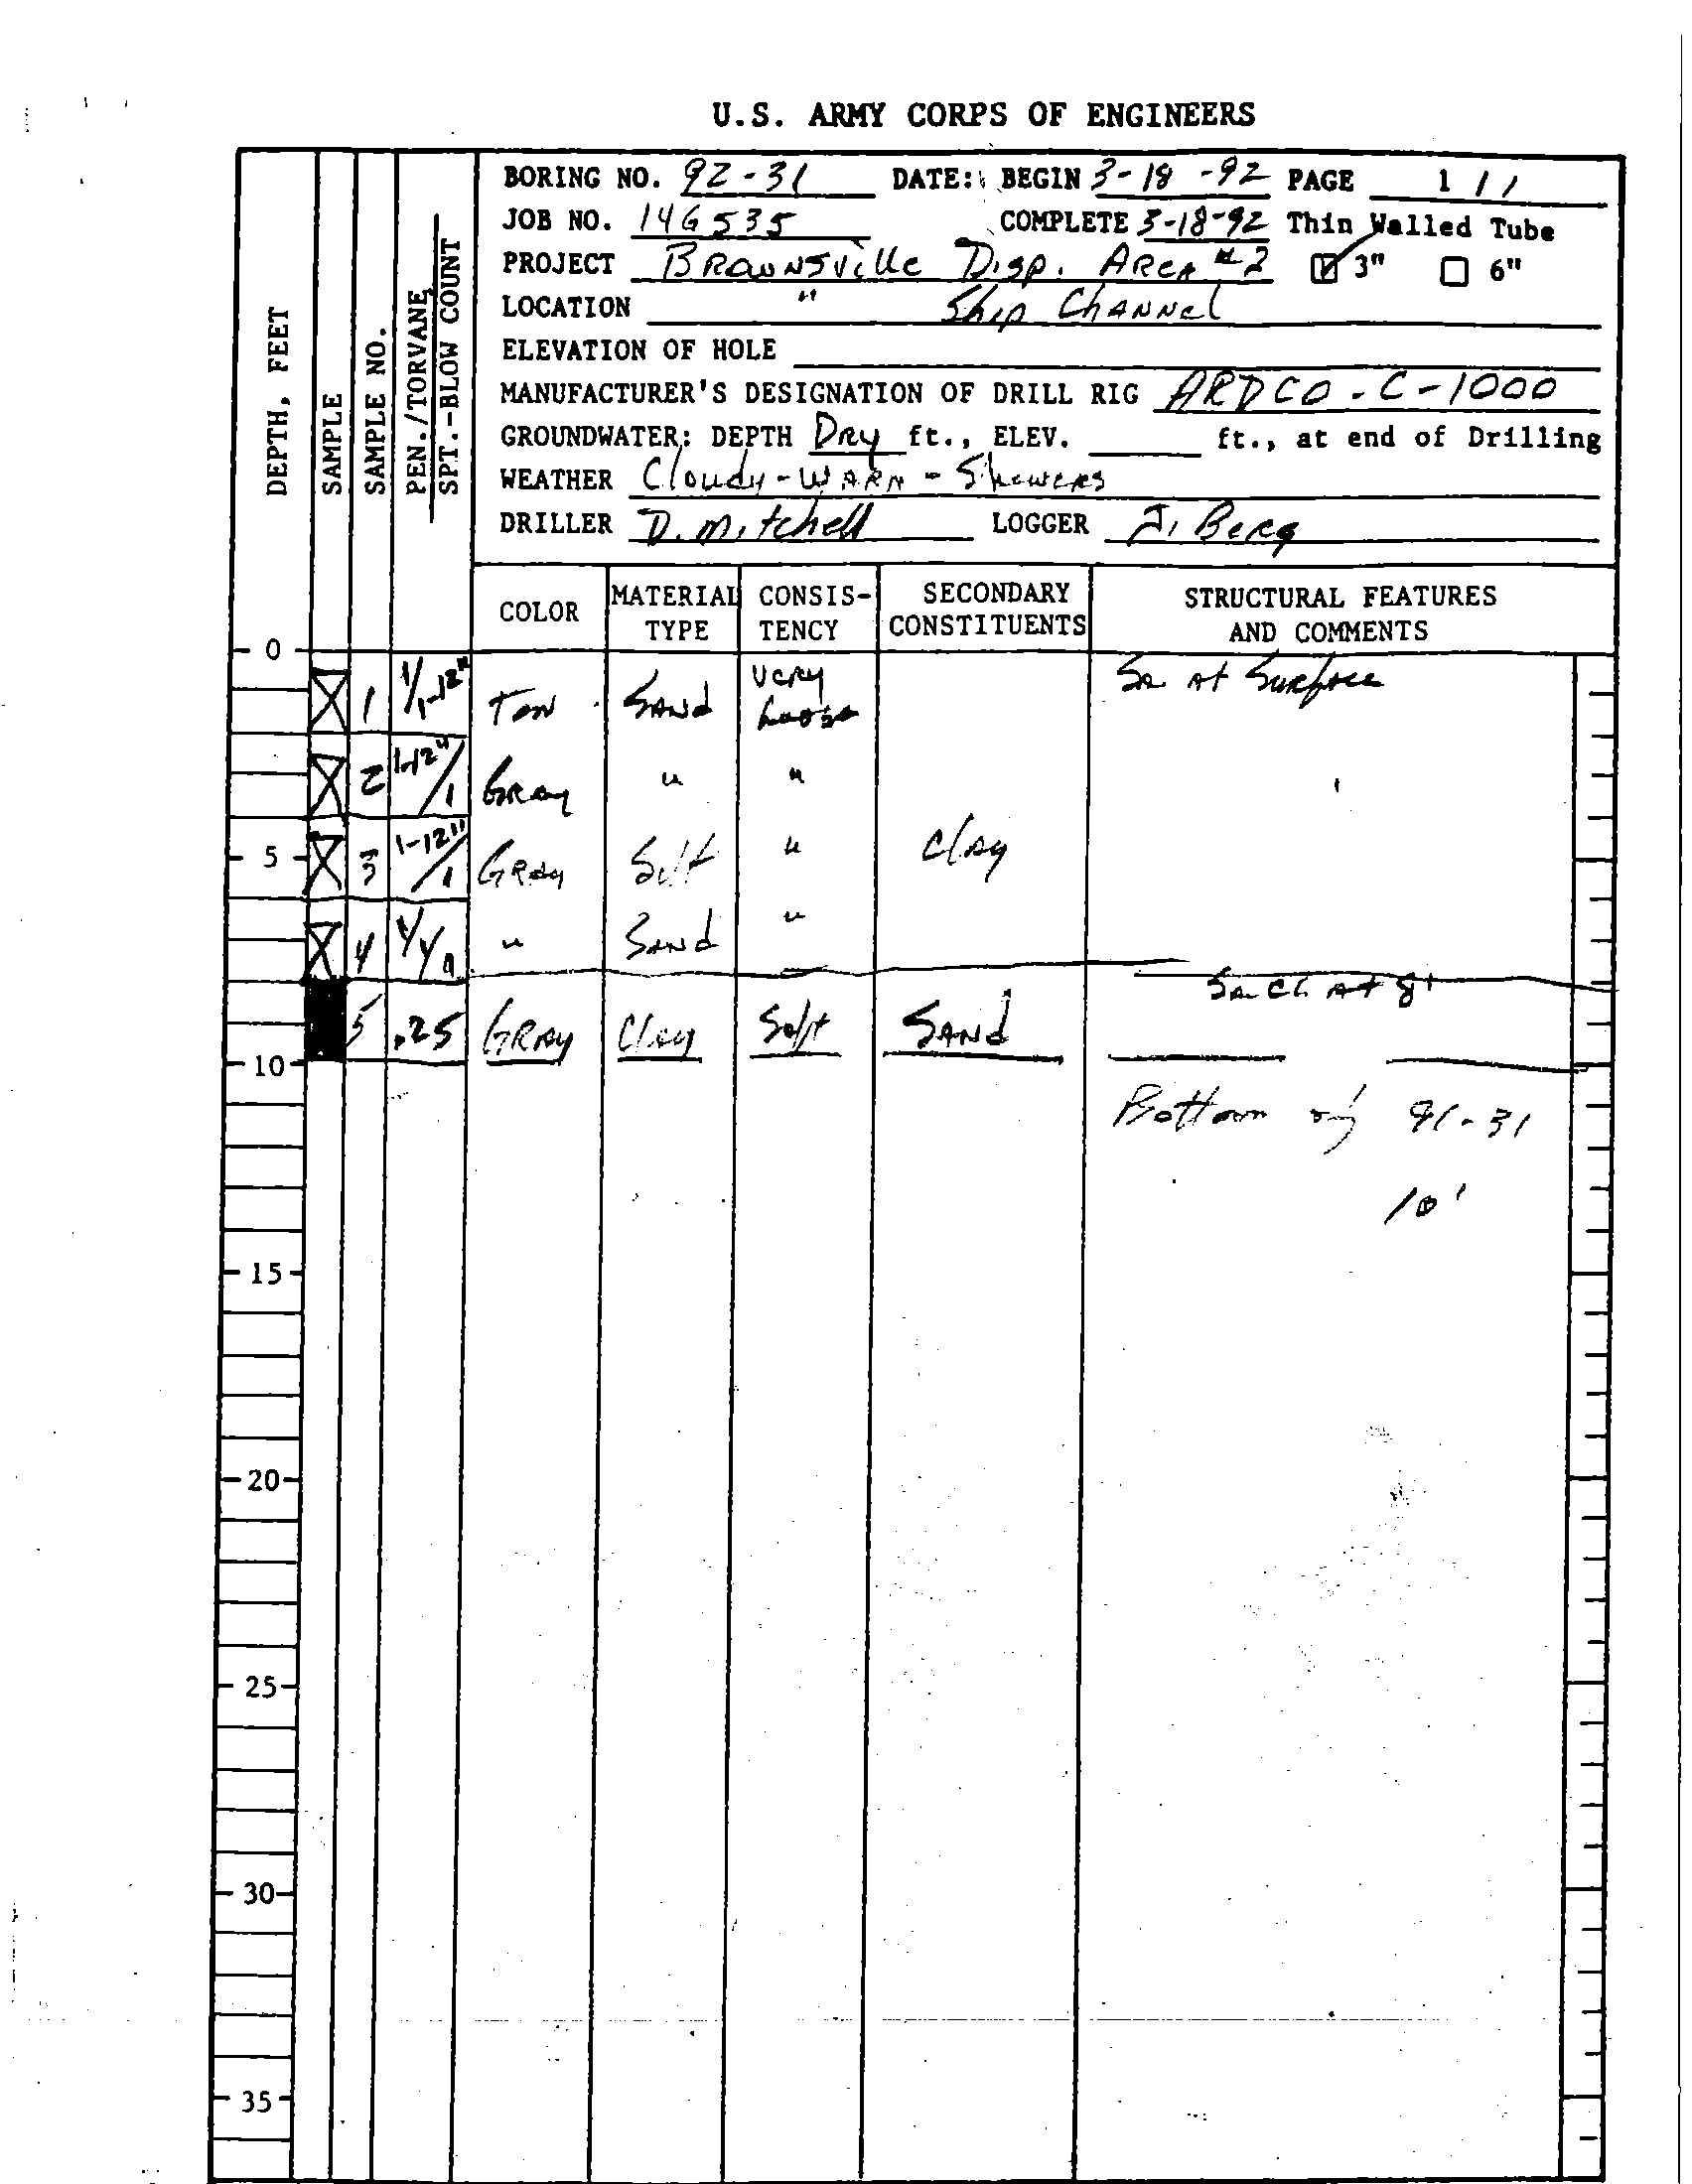 U.S. ARMY CORPS OF ENGINEERS
BORING NO. 92-31 DATE: BEGIN 3-18-92 PAGE 1 / 1
JOB NO. 14G535 COMPLETE 3-18-92 Thin Walled Tube
PROJECT BROWNSVille Disp. AREA #2 ☑ 3" ☐ 6"
LOCATION " Ship CHANNel
ELEVATION OF HOLE
MANUFACTURER'S DESIGNATION OF DRILL RIG ARDCO - C-1000
GROUNDWATER: DEPTH DRy ft., ELEV. ft., at end of Drilling
WEATHER Cloudy - WARM - Showers
DRILLER D. Mitchell LOGGER J. Berg
DEPTH, FEET
SAMPLE
SAMPLE NO.
PEN./TORVANE,
SPT.-BLOW COUNT
COLOR MATERIAL TYPE CONSIS-TENCY SECONDARY CONSTITUENTS STRUCTURAL FEATURES AND COMMENTS
0
1 1/1-12" TAN SAND Very Loose Sa At Surface
2 1-12"/1 GRAY " "
5 3 1-12"/1 GRAY Silt " Clay
4 " SAND "
Sa CL At 8'
5 .25 GRAY Clay Soft SAND
10
Bottom of 91-31
10'
15
20
25
30
35